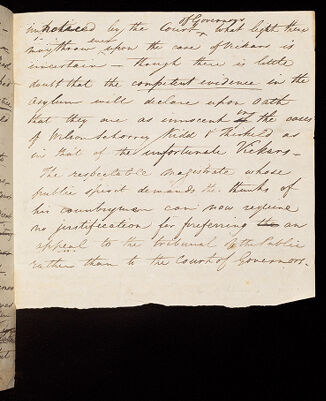 of Governors
introduced by the Court, what light these
may throw upon the case of Vickars is
uncertain — though there is little
doubt that the competent evidence in the
Asylum will declare upon oath
that they are as innocent in the cases
of Wilson Schorrey Kidd & Thirkeld as
in that of the unfortunate Vickars. —
The respectable magistrate whose
public spirit demands the thanks of
his countrymen can now require
no justification for preferring an
appeal to the tribunal of the Public
rather than to the Court of Governors.